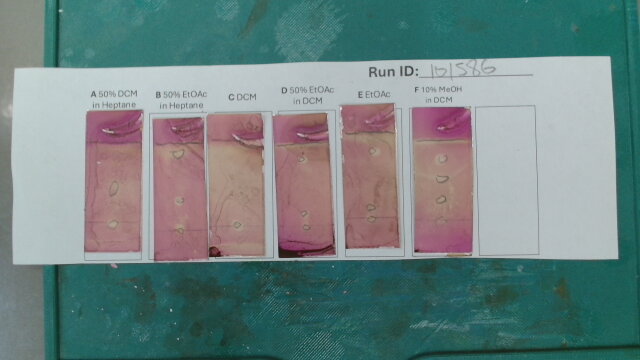 Run ID: 10/586
A 50% DCM
in Heptane
B 50% EtOAc
in Heptane
C DCM
D 50% EtOAc
in DCM
E EtOAc
F 10% MeOH
in DCM